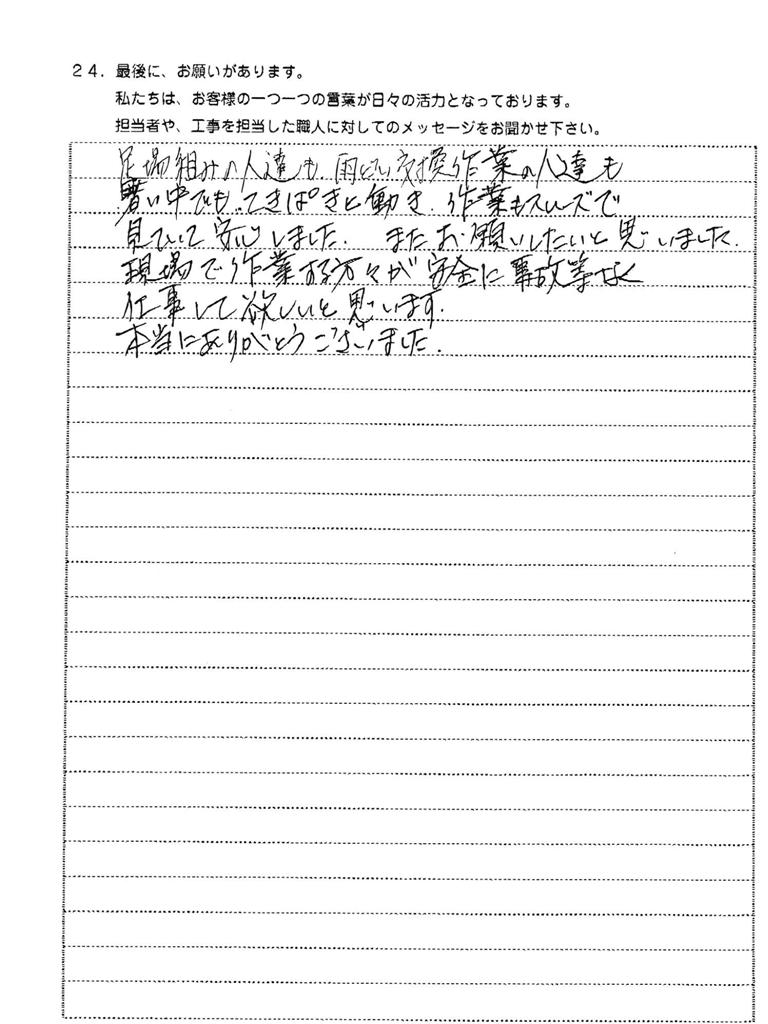 24. 最後に、お願いがあります。
私たちは、お客様の一つ一つの言葉が日々の活力となっております。
担当者や、工事を担当した職人に対してのメッセージをお聞かせ下さい。
足場組みの人達も、雨どい交換作業の人達も
暑い中でも、てきぱきと働き、作業もスムーズで
見ていて安心しました。 またお願いしたいと思いました。
現場で作業する方々が安全に事故等なく
仕事して欲しいと思います。
本当にありがとうございました。